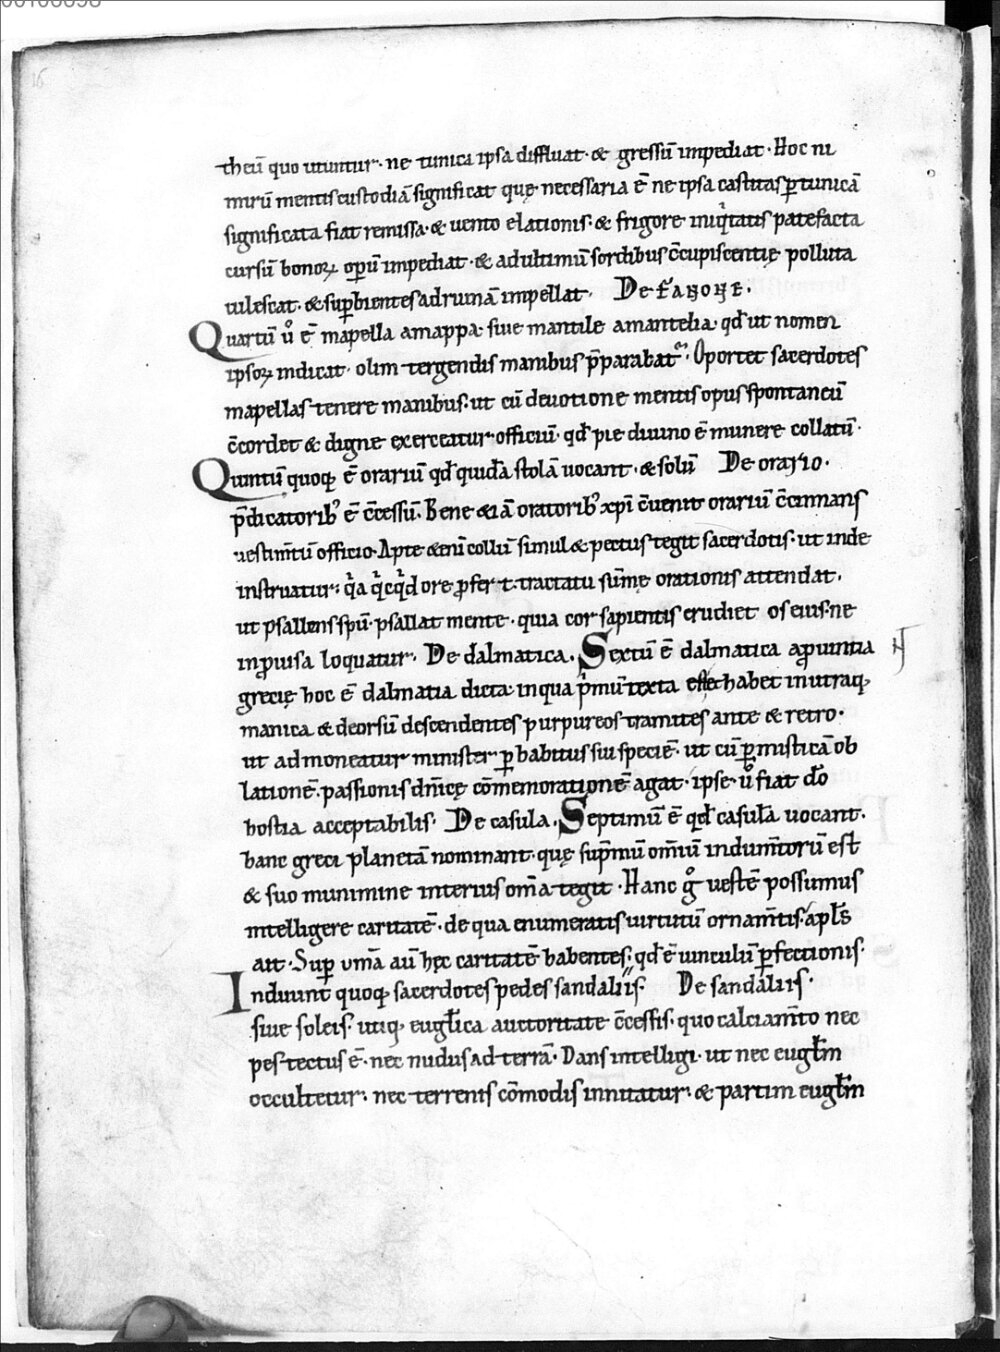 theū quo utuntur· ne tunica ipsa diffluat· & gressū impediat· Hoc ni
mirū mentis custodiā significat quę necessaria ē ne ipsa castitas ꝑ tunicā
significata fiat remissa· & uento elationis· & frigore iniqͥtatis patefacta
cursū bonoꝝ opū impediat· & ad ultimū sordibus c̄cupiscentię polluta
uilescat· & suꝑbientes ad ruinā impellat· De fanone.
Quartū u̾ ē mapella a mappa· siue mantile a mantelia· qd̄ ut nomen
ipsoꝝ indicat· olim tergendis manibus p̄parabat᷑· Oportet sacerdotes
mapellas tenere manibus· ut cū deuotione mentis opus spontaneū
c̄cordet & digne exerceatur officiū· qd̄ pie diuino ē munere collatū·
Quintū quoq; ē orariū qd̄ quidā stolā uocant· & solū De orario·
p̄dicatorib; ē c̄cessū· Bene & iā oratorib; xp̄i c̄uenit orariū c̄cinnans
uestim̄tū officio· Apte & eni collū simul & pectus tegit sacerdotis· ut inde
instruatur· qͥa qͥcqͥd ore ꝓfert· tractatu sūmę orationis attendat·
ut psallens spū· psallat mente· quia cor sapientis erudiet os eius· ne
inꝓuisa loquatur· De dalmatica. Sextū ē dalmatica a ꝓuintia
grecię hoc ē dalmatia dicta· in qua pͥmū texta habet in utraq;
manica & deorsū descendentes purpureos tramites ante & retro·
ut admoneatur minister ꝑ habitus sui speciē· ut cū ꝑ misticā ob
lationē· passionis dn̄icę cōmemorationē agat· ipse u̾ fiat dō
hostia acceptabilis· De casula. Septimū ē qd̄ casulā uocant·
hanc greci planetā nominant· quę sup̄mū om̄iū indum̄torū est
& suo munimine interius om̄a tegit· Hanc gͦ uestē possumus
intelligere caritatē· de qua enumeratis uirtutū ornam̄tis· apl̄s
ait· Suꝑ om̄a aū hęc caritatē habentes· qd̄ ē uinculū ꝑfectionis·
Induunt quoq; sacerdotes pedes sandaliis· De sandaliis·
siue soleis· utiq; eugl̄ica auctoritate c̄cessis· quo calciam̄to nec
pes tectus ē· nec nudus ad terrā· Dans intelligi· ut nec eugl̄m
occultetur· nec terrenis cōmodis innitatur· & partim eugl̄m